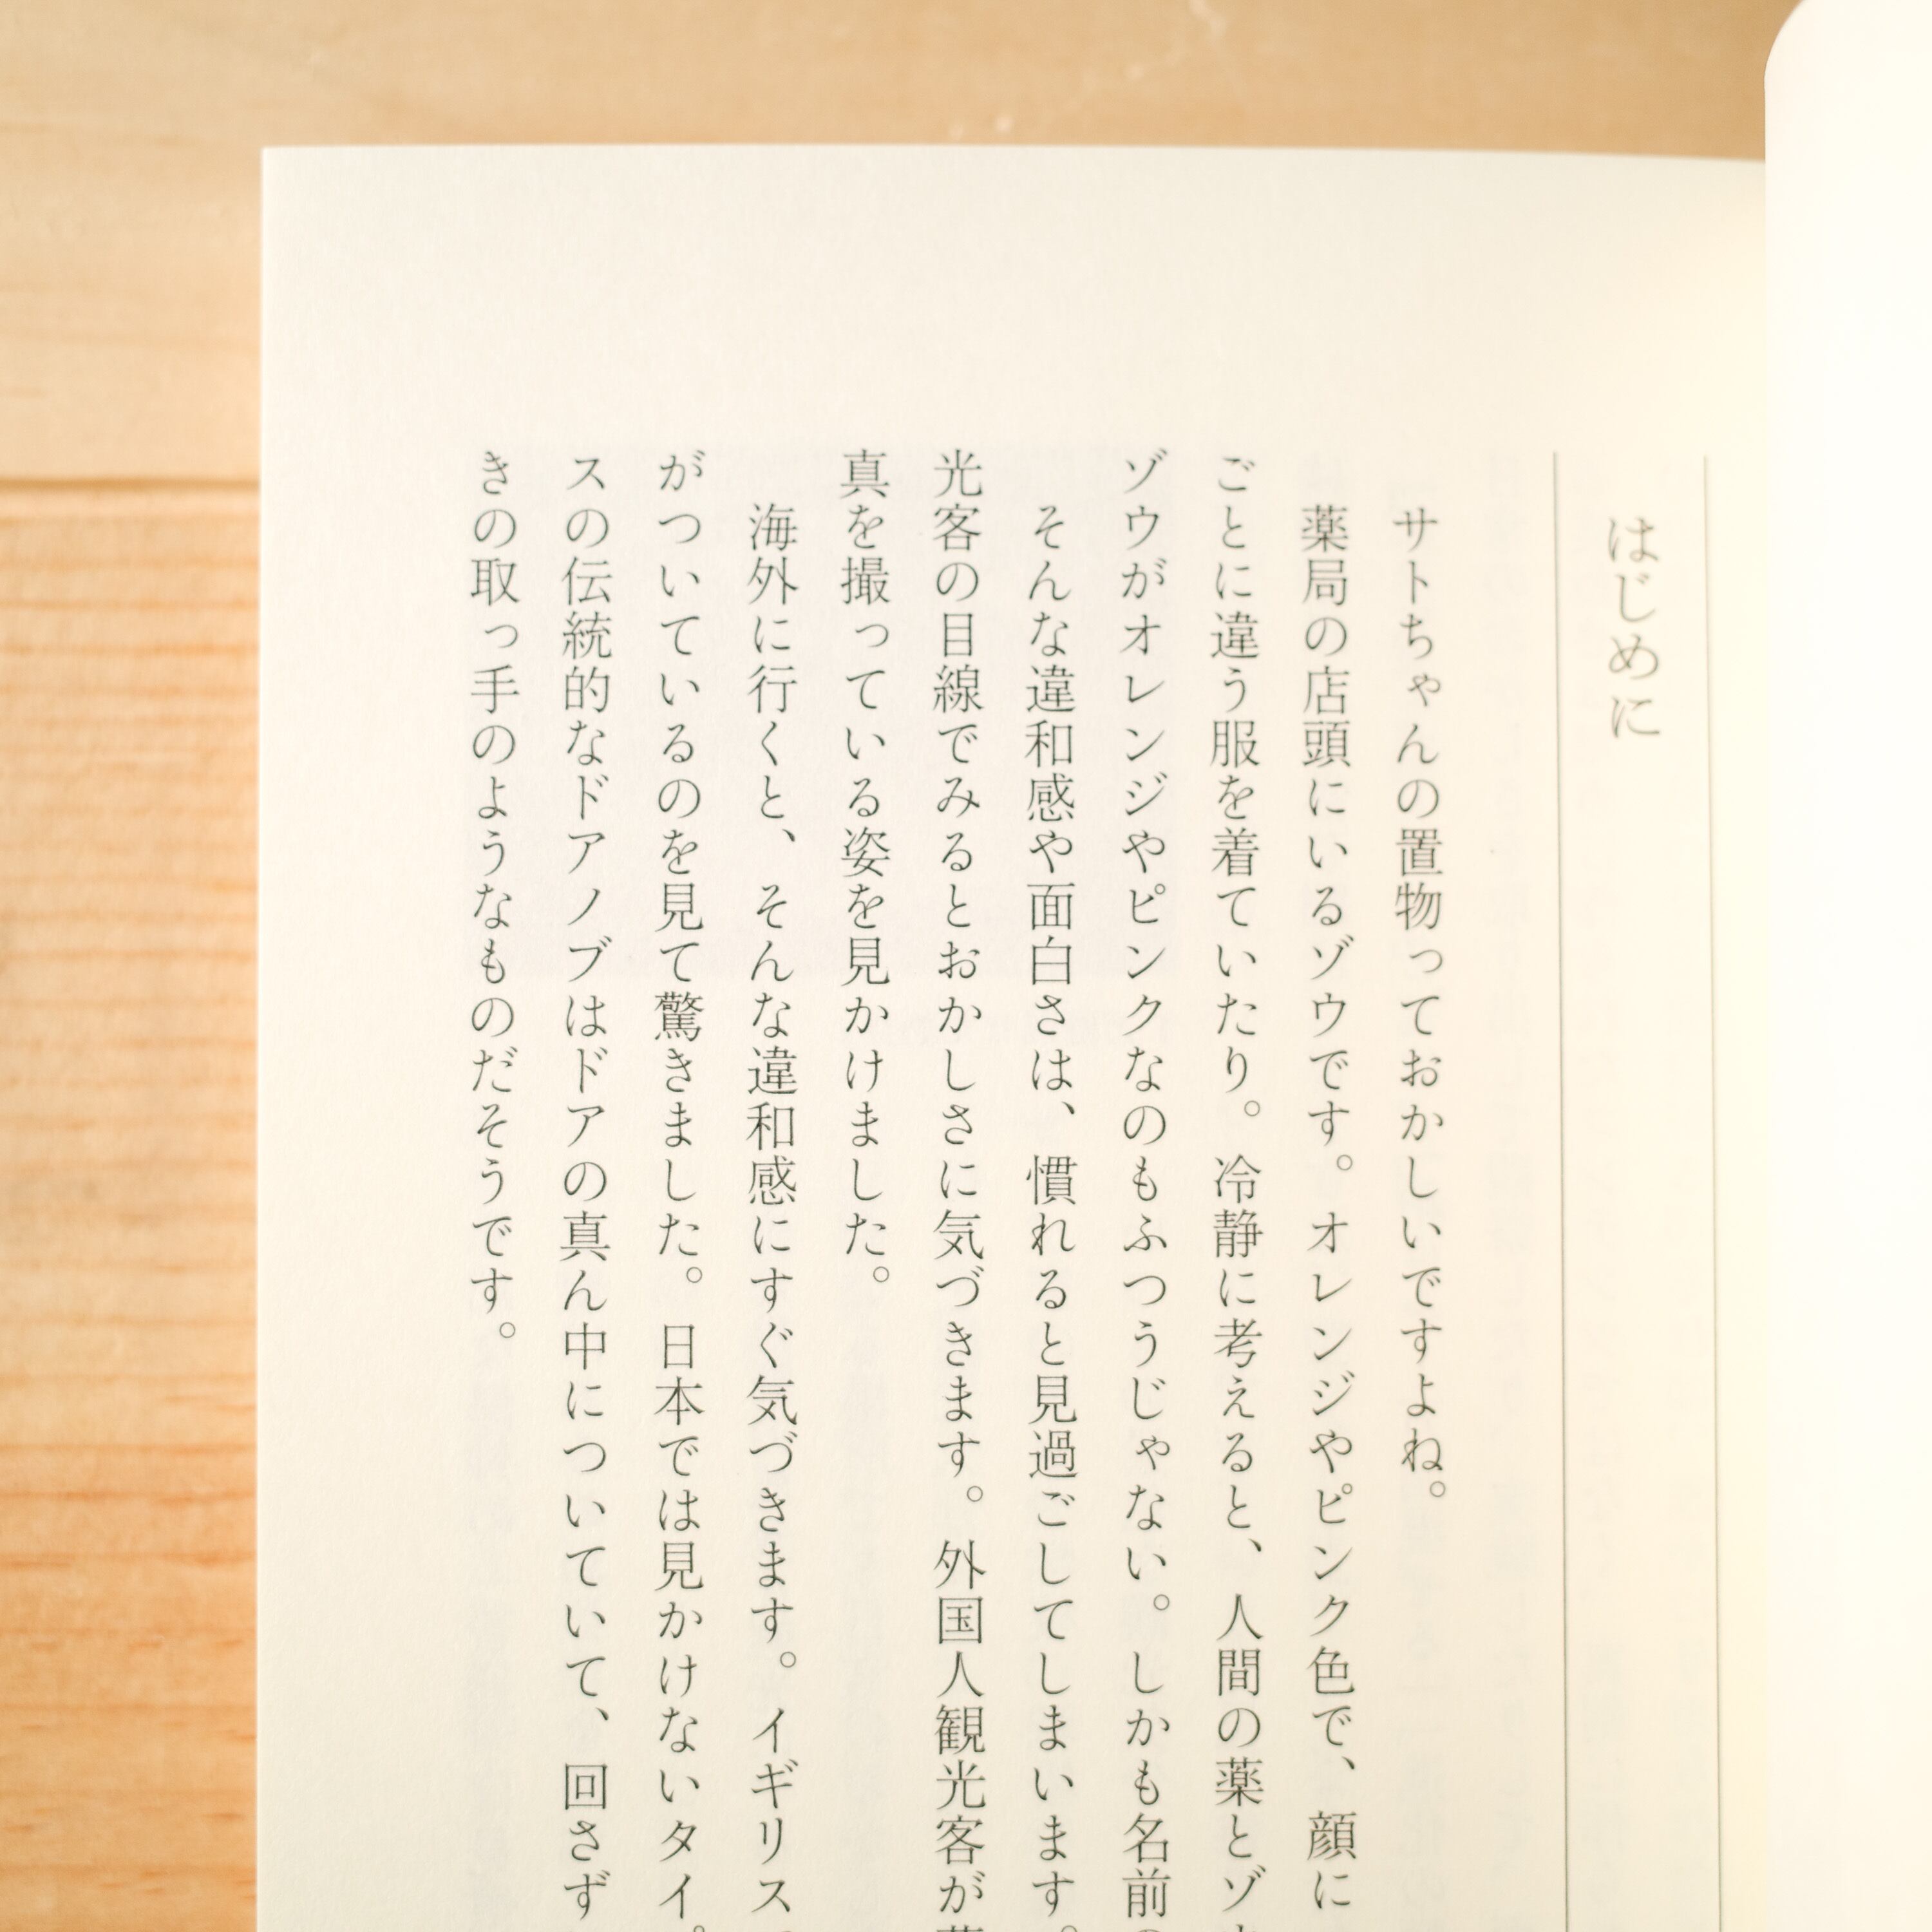 はじめに
サトちゃんの置物っておかしいですよね。
薬局の店頭にいるゾウです。オレンジやピンク色で、顔に
ごとに違う服を着ていたり。冷静に考えると、人間の薬とゾ
ゾウがオレンジやピンクなのもふつうじゃない。しかも名前
そんな違和感や面白さは、慣れると見過ごしてしまいます。
光客の目線でみるとおかしさに気づきます。外国人観光客が
真を撮っている姿を見かけました。
海外に行くと、そんな違和感にすぐ気づきます。イギリス
がついているのを見て驚きました。日本では見かけないタイ
スの伝統的なドアノブはドアの真ん中についていて、回さず
きの取っ手のようなものだそうです。